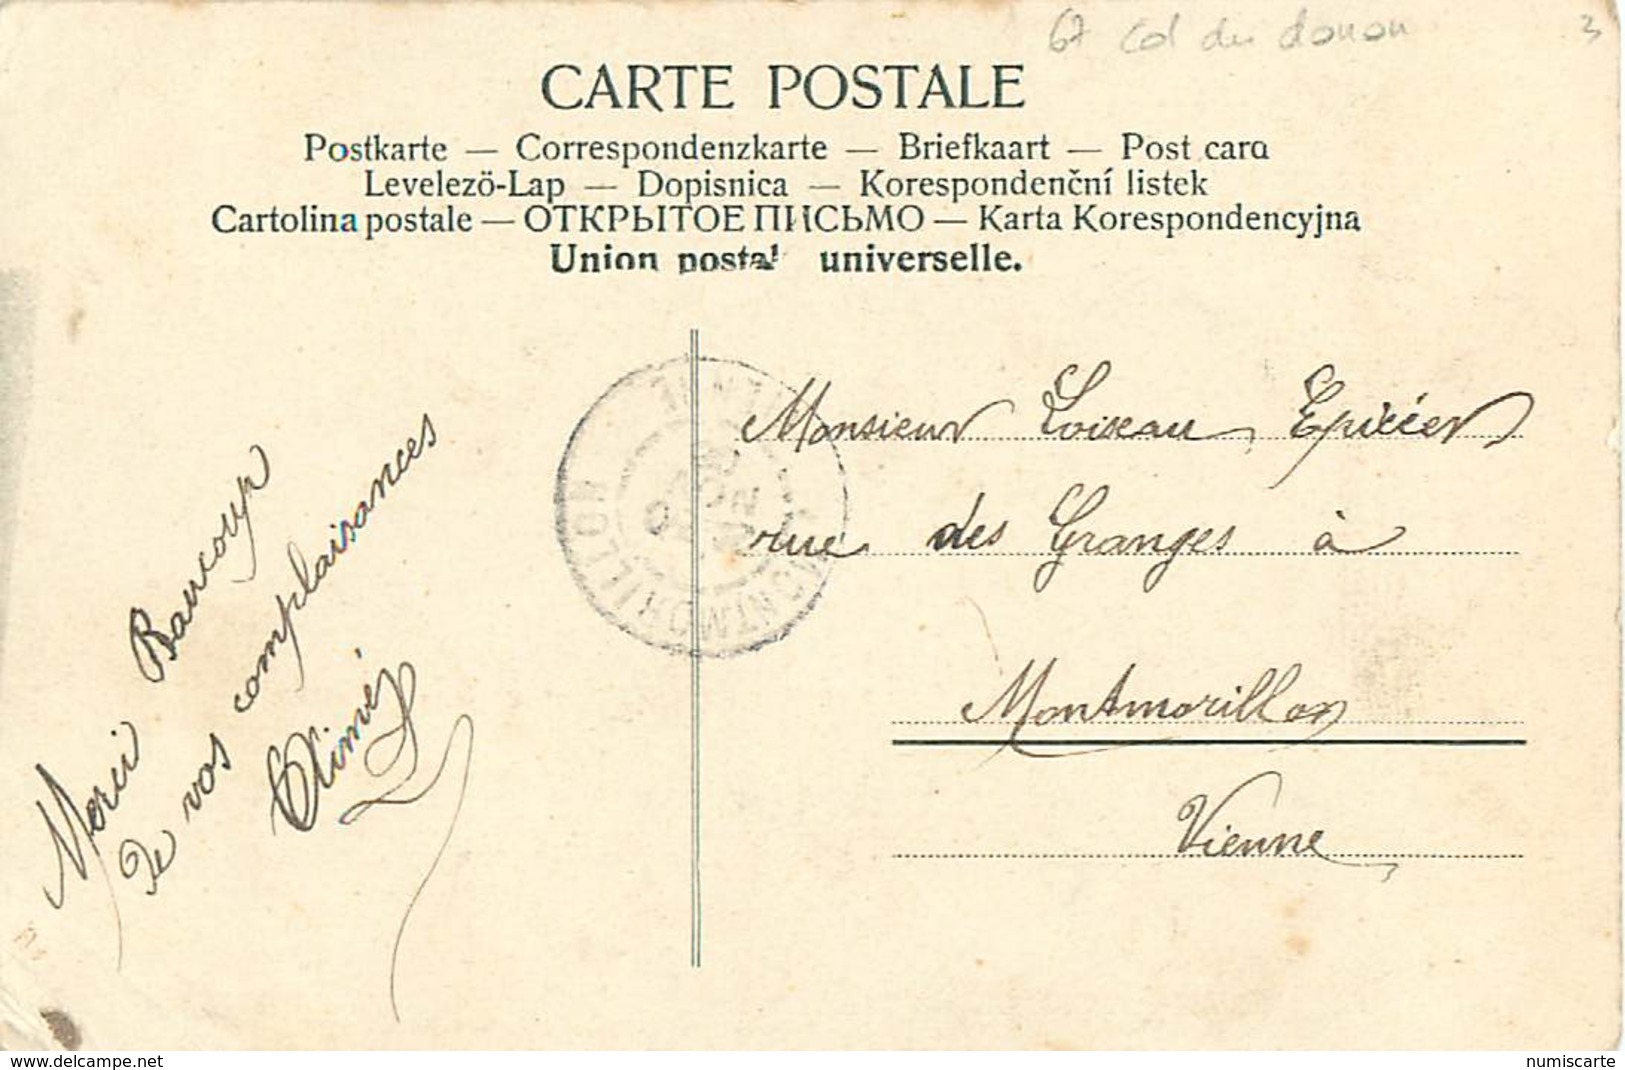 67 Col du donon 3
CARTE POSTALE
Postkarte — Correspondenzkarte — Briefkaart — Post card
Levelezö-Lap — Dopisnica — Korespondenční listek
Cartolina postale — ОТКРЫТОЕ ПИСЬМО — Karta Korespondencyjna
Union postale universelle.
Merci Baucoup
de vos complaisances
Aimé
MONTMORILLON
Monsieur Loiseau Epiciéer
rue des Granges à
Montmorillon
Vienne
www.delcampe.net
numiscarte